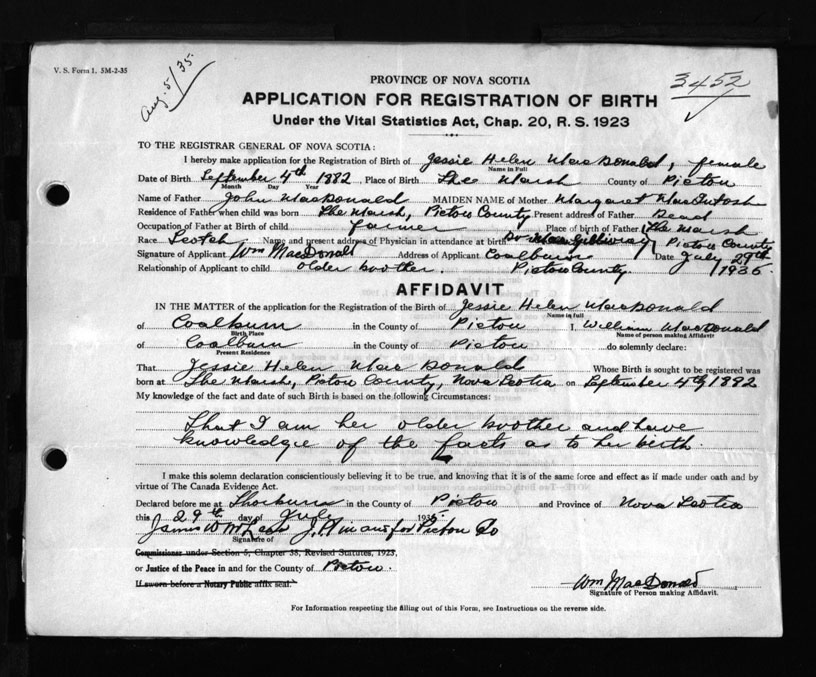 V. S. Form 1. 5M-2-35
Aug. 5/35.
3452
PROVINCE OF NOVA SCOTIA
APPLICATION FOR REGISTRATION OF BIRTH
Under the Vital Statistics Act, Chap. 20, R. S. 1923
TO THE REGISTRAR GENERAL OF NOVA SCOTIA:
I hereby make application for the Registration of Birth of Jessie Helen MacDonald, female
Name in Full
Date of Birth September 4th 1882, Place of Birth The Marsh County of Pictou
Month Day Year
Name of Father John MacDonald MAIDEN NAME of Mother Margaret MacIntosh
Residence of Father when child was born The Marsh, Pictou County Present address of Father Dead
Occupation of Father at Birth of child farmer Place of birth of Father The Marsh
Race Scotch Name and present address of Physician in attendance at birth Dr MacGillivray Pictou County
Signature of Applicant Wm MacDonald Address of Applicant Coalburn Date July 29th
Relationship of Applicant to child older brother. Pictou County. 1935.
AFFIDAVIT
IN THE MATTER of the application for the Registration of the Birth of Jessie Helen MacDonald
Name in full
of Coalburn in the County of Pictou I, William MacDonald
Birth Place Name of person making Affidavit
of Coalburn in the County of Pictou do solemnly declare:
Present Residence
That Jessie Helen MacDonald Whose Birth is sought to be registered was
born at The Marsh, Pictou County, Nova Scotia on September 4th 1882
My knowledge of the fact and date of such Birth is based on the following Circumstances:
That I am her older brother and have
knowledge of the facts as to her birth.
I make this solemn declaration conscientiously believing it to be true, and knowing that it is of the same force and effect as if made under oath and by
virtue of The Canada Evidence Act.
Declared before me at Thorburn in the County of Pictou and Province of Nova Scotia
this 29th day of July 1935
James W McLean J.P. in and for Pictou Co
Signature of
Commissioner under Section 5, Chapter 38, Revised Statutes, 1923,
or Justice of the Peace in and for the County of Pictou.
If sworn before a Notary Public affix seal.
Wm MacDonald
Signature of Person making Affidavit.
For Information respecting the filling out of this Form, see Instructions on the reverse side.